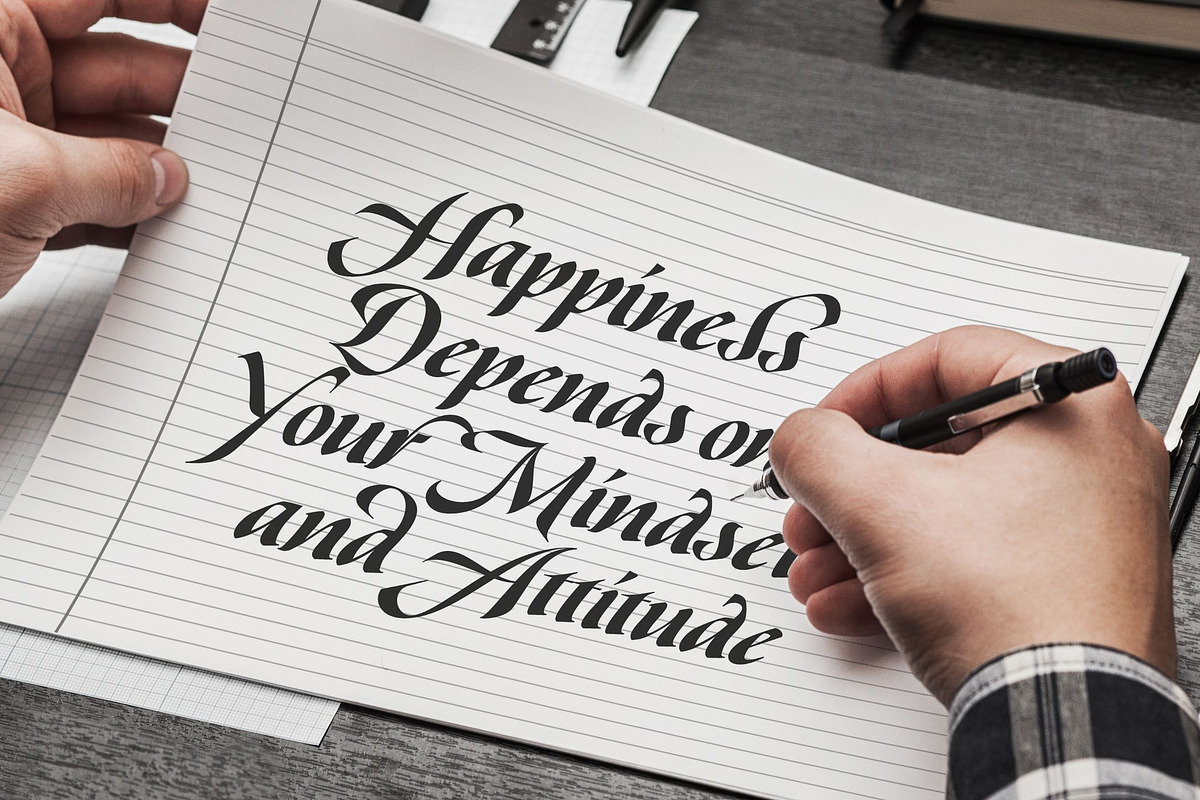 Happiness
Depends on
Your Mindset
and Attitude